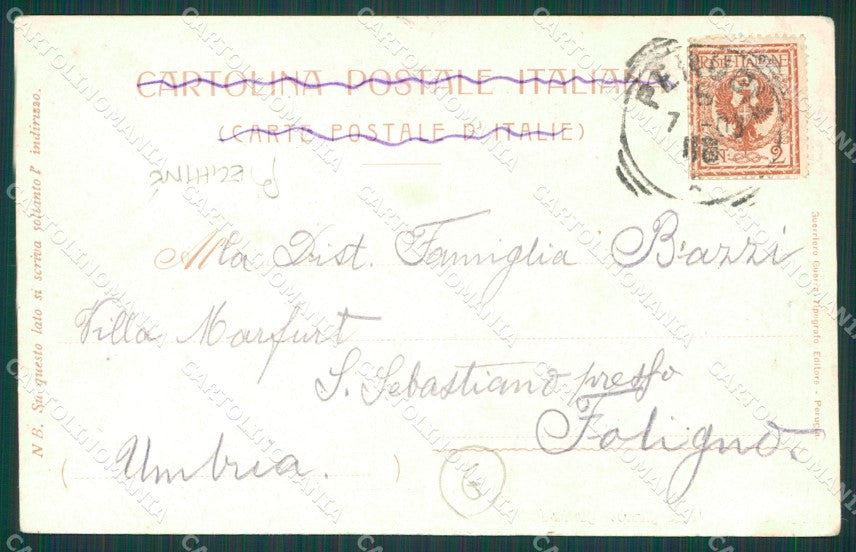 CARTOLINA POSTALE ITALIANA
(CARTE POSTALE D'ITALIE)
POSTE ITALIANE
2
PERUGIA
7
Alla Dist. Famiglia Bazzi
Villa Marfurt
S. Sebastiano presso
Foligno.
Umbria.
N B. Su questo lato si scriva soltanto l' indirizzo.
Guerriero Guerra, Tipografo Editore - Perugia
CARTOLINOMANIA